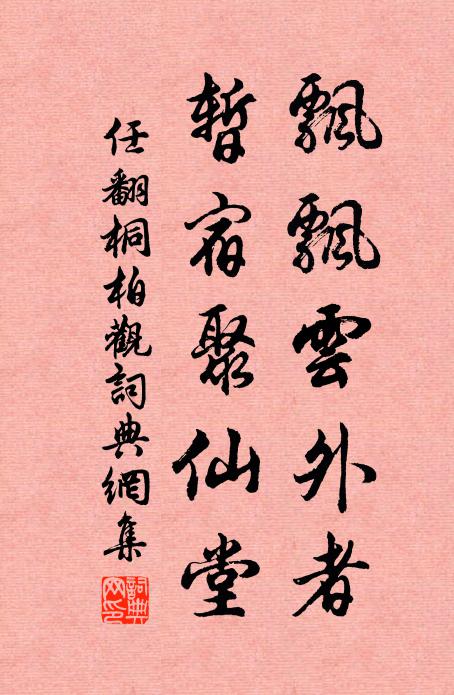 飄飄雲外者
暫宿聚仙堂
任翻桐柏觀詞典網集
詞典網印